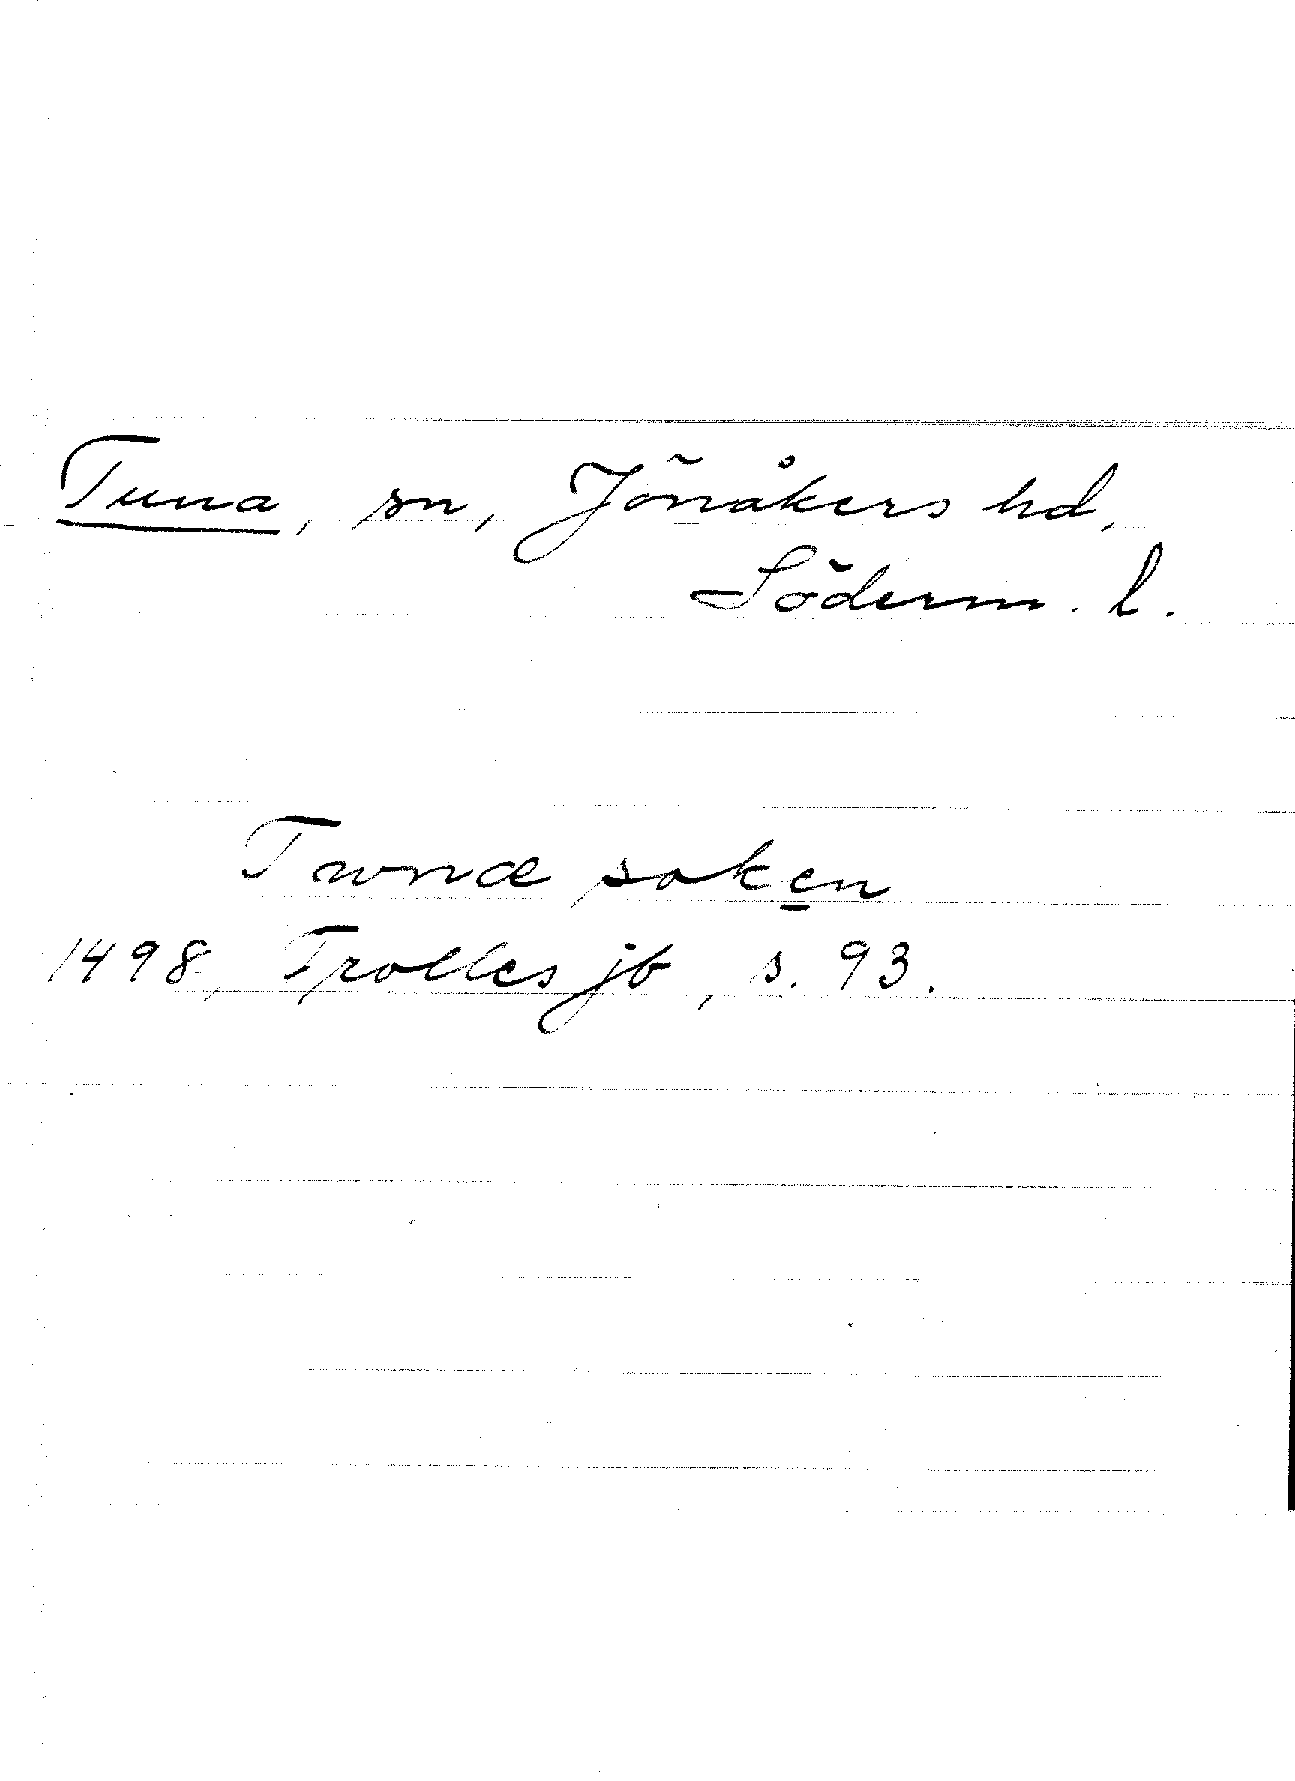 Tuna, sn, Jönåkers hd,
Söderm. l.
Twnæ soken
1498, Trolles jb, s. 93.